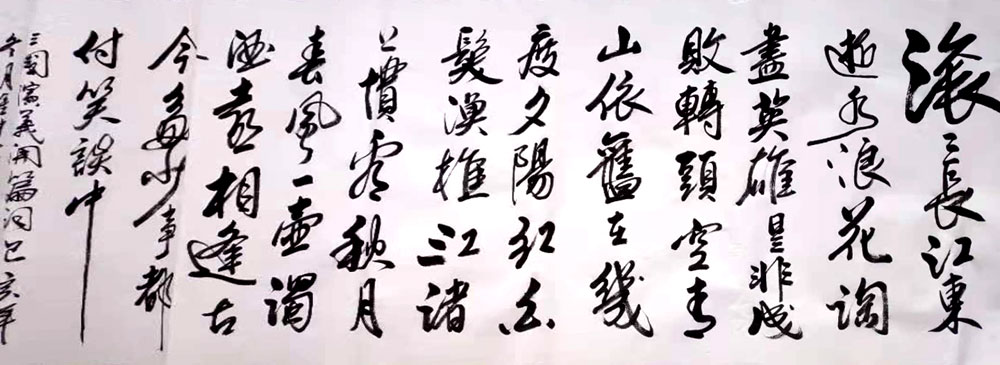 滚々長江東
逝水浪花淘
盡英雄是非成
敗轉頭空青
山依舊在幾
度夕陽紅白
髮漁樵江渚
上慣看秋月
春風一壺濁
酒喜相逢古
今多少事都
付笑談中
三國演義開篇词己亥年
冬月